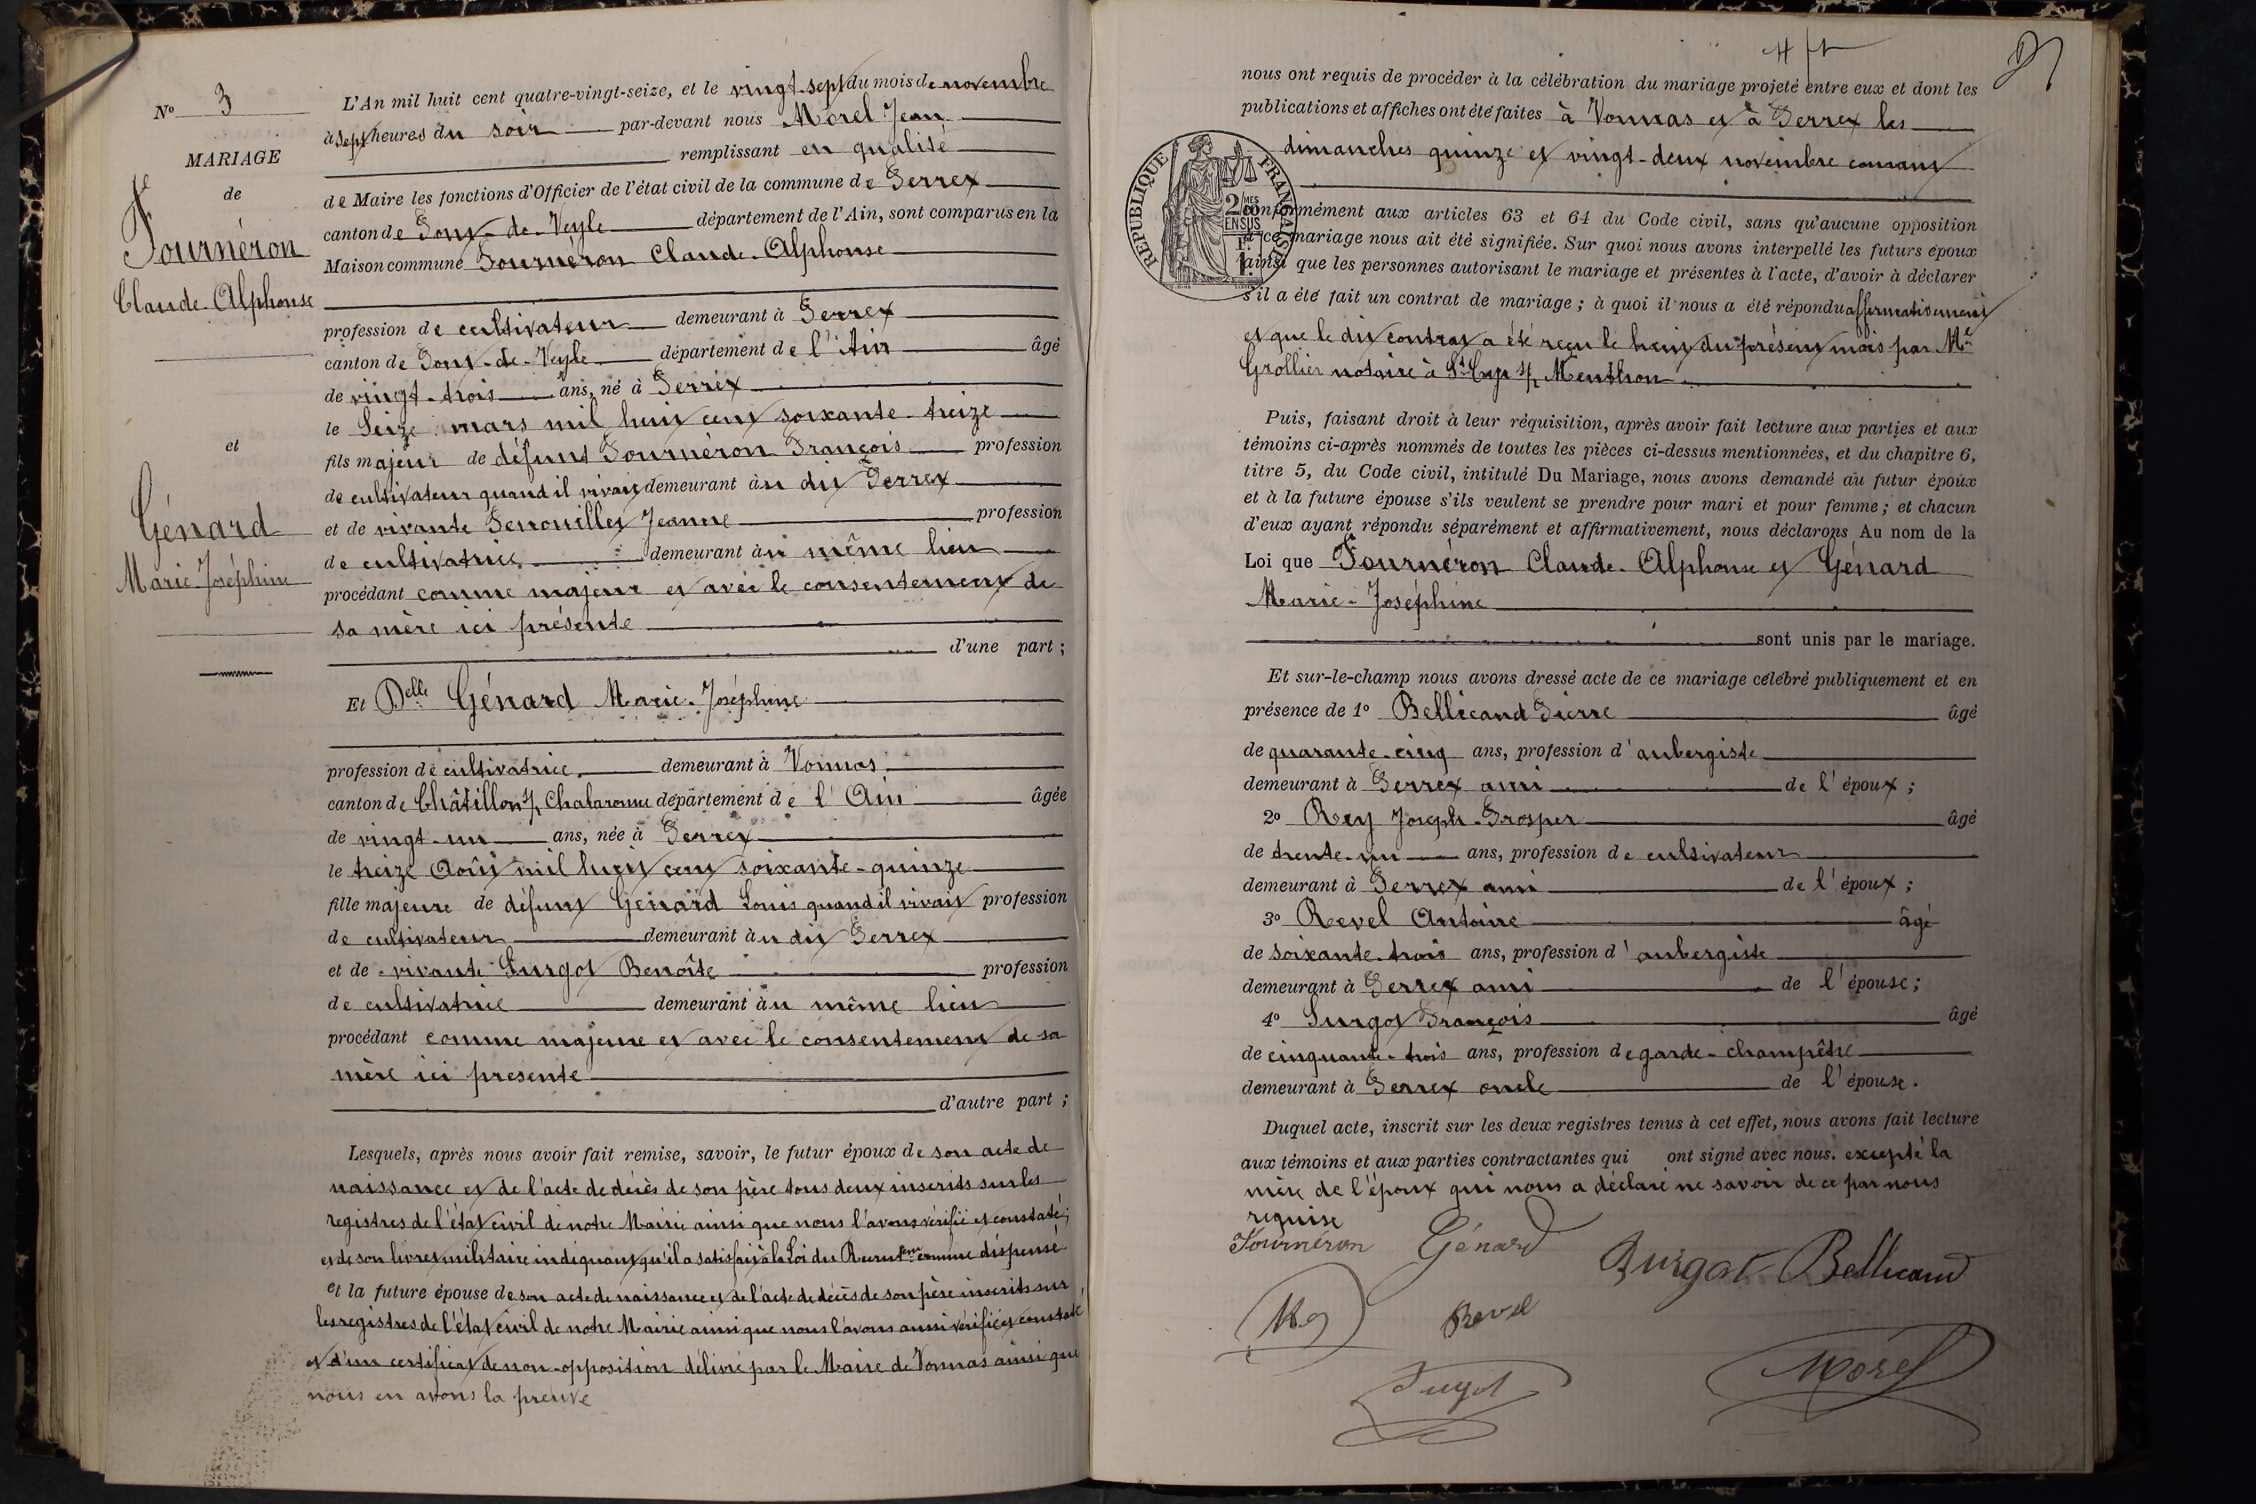 Nº 3
MARIAGE
de
Fournéron
Claude-Alphonse
et
Génard
Marie-Joséphine
L'An mil huit cent quatre-vingt-seize, et le vingt-sept du mois de novembre
à sept heures du soir par-devant nous Morel Jean
remplissant en qualité
de Maire les fonctions d'Officier de l'état civil de la commune de Perrex
canton de Pont-de-Veyle département de l'Ain, sont comparus en la
Maison commune Fournéron Claude-Alphonse
profession de cultivateur demeurant à Perrex
canton de Pont-de-Veyle département de l'Ain âgé
de vingt-trois ans, né à Perrex
le Seize mars mil huit cent soixante-treize
fils majeur de défunt Fournéron François profession
de cultivateur quand il vivait demeurant au dit Perrex
et de vivante Jeanne profession
de cultivatrice demeurant au même lieu
procédant comme majeur et avec le consentement de
sa mère ici présente
d'une part ;
Et Delle Génard Marie-Joséphine
profession de cultivatrice demeurant à Vonnas
canton de Châtillon s/ Chalaronne département de l'Ain âgée
de vingt-un ans, née à Perrex
le treize Août mil huit cent soixante-quinze
fille majeure de défunt Génard Louis quand il vivait profession
de cultivateur demeurant au dit Perrex
et de vivante Burgot Benoîte profession
de cultivatrice demeurant au même lieu
procédant comme majeure et avec le consentement de sa
mère ici presente
d'autre part ;
Lesquels, après nous avoir fait remise, savoir, le futur époux de son acte de
naissance et de l'acte de décès de son père tous deux inscrits sur les
registres de l'état civil de notre Mairie ainsi que nous l'avons vérifié et constaté;
et de son livret militaire indiquant qu'il a satisfait à la Loi du Recrutemt comme dispensé
et la future épouse de son acte de naissance et de l'acte de décès de son père inscrits sur
les registres de l'état civil de notre Mairie ainsi que nous l'avons aussi vérifié et constaté
et d'un certificat de non-opposition délivré par le Maire de Vonnas ainsi que
nous en avons la preuve
nous ont requis de procéder à la célébration du mariage projeté entre eux et dont les
publications et affiches ont été faites à Vonnas et à Perrex les
dimanches quinze et vingt-deux novembre courant
RÉPUBLIQUE FRANÇAISE
2 MES EN SUS
conformément aux articles 63 et 64 du Code civil, sans qu'aucune opposition
à ce mariage nous ait été signifiée. Sur quoi nous avons interpellé les futurs époux
ainsi que les personnes autorisant le mariage et présentes à l'acte, d'avoir à déclarer
s'il a été fait un contrat de mariage ; à quoi il nous a été répondu affirmativement
et que le dit contrat a été reçu le huit du présent mois par Me
Grollier notaire à St Cyr s/ Menthon
Puis, faisant droit à leur réquisition, après avoir fait lecture aux parties et aux
témoins ci-après nommés de toutes les pièces ci-dessus mentionnées, et du chapitre 6,
titre 5, du Code civil, intitulé Du Mariage, nous avons demandé au futur époux
et à la future épouse s'ils veulent se prendre pour mari et pour femme ; et chacun
d'eux ayant répondu séparément et affirmativement, nous déclarons Au nom de la
Loi que Fournéron Claude-Alphonse et Génard
Marie-Joséphine
sont unis par le mariage.
Et sur-le-champ nous avons dressé acte de ce mariage célébré publiquement et en
présence de 1º Bellicand Pierre âgé
de quarante-cinq ans, profession d'aubergiste
demeurant à Perrex ami de l'époux ;
2º Rey Joseph-Prosper âgé
de trente-un ans, profession de cultivateur
demeurant à Perrex ami de l'époux ;
3º Revel Antoine âgé
de soixante-trois ans, profession d'aubergiste
demeurant à Perrex ami de l'épouse ;
4º Burgot François âgé
de cinquante-trois ans, profession de garde-champêtre
demeurant à Perrex oncle de l'épouse.
Duquel acte, inscrit sur les deux registres tenus à cet effet, nous avons fait lecture
aux témoins et aux parties contractantes qui ont signé avec nous. excepté la
mère de l'époux qui nous a déclaré ne savoir de ce par nous
requise
Fournéron Génard Burgot Bellicand
Rey Revel
Burgot Morel